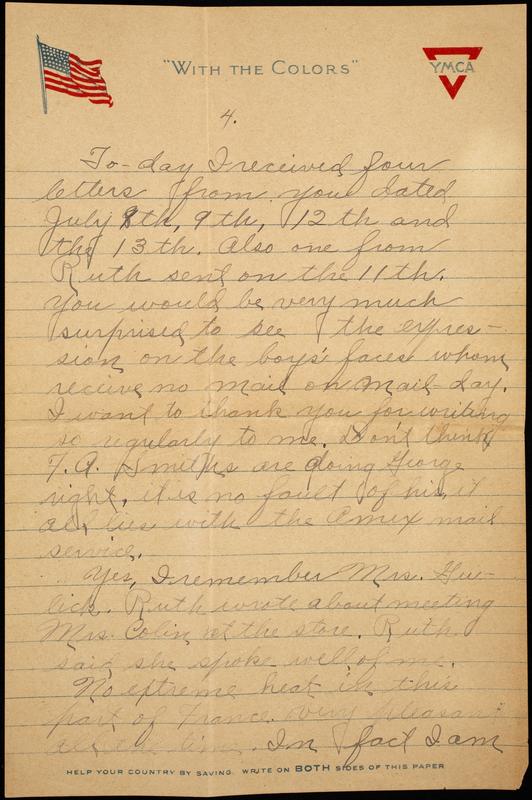 "WITH THE COLORS"
YMCA
4.
To-day I received four
letters from you dated
July 8th, 9th, 12th and
the 13th. Also one from
Ruth sent on the 11th.
You would be very much
surprised to see the expres-
sion on the boys' faces whom
receive no mail on mail-day.
I want to thank you for writing
so regularly to me. Don't think
F. A. Smiths are doing George
right, it is no fault of his, it
all lies with the Amex mail
service.
Yes, I remember Mrs. Hu-
lick. Ruth wrote about meeting
Mrs. Colin at the store. Ruth
said she spoke well of me.
No extreme heat in this
part of France. Very pleasant
all the time. In fact I am
HELP YOUR COUNTRY BY SAVING. WRITE ON BOTH SIDES OF THIS PAPER